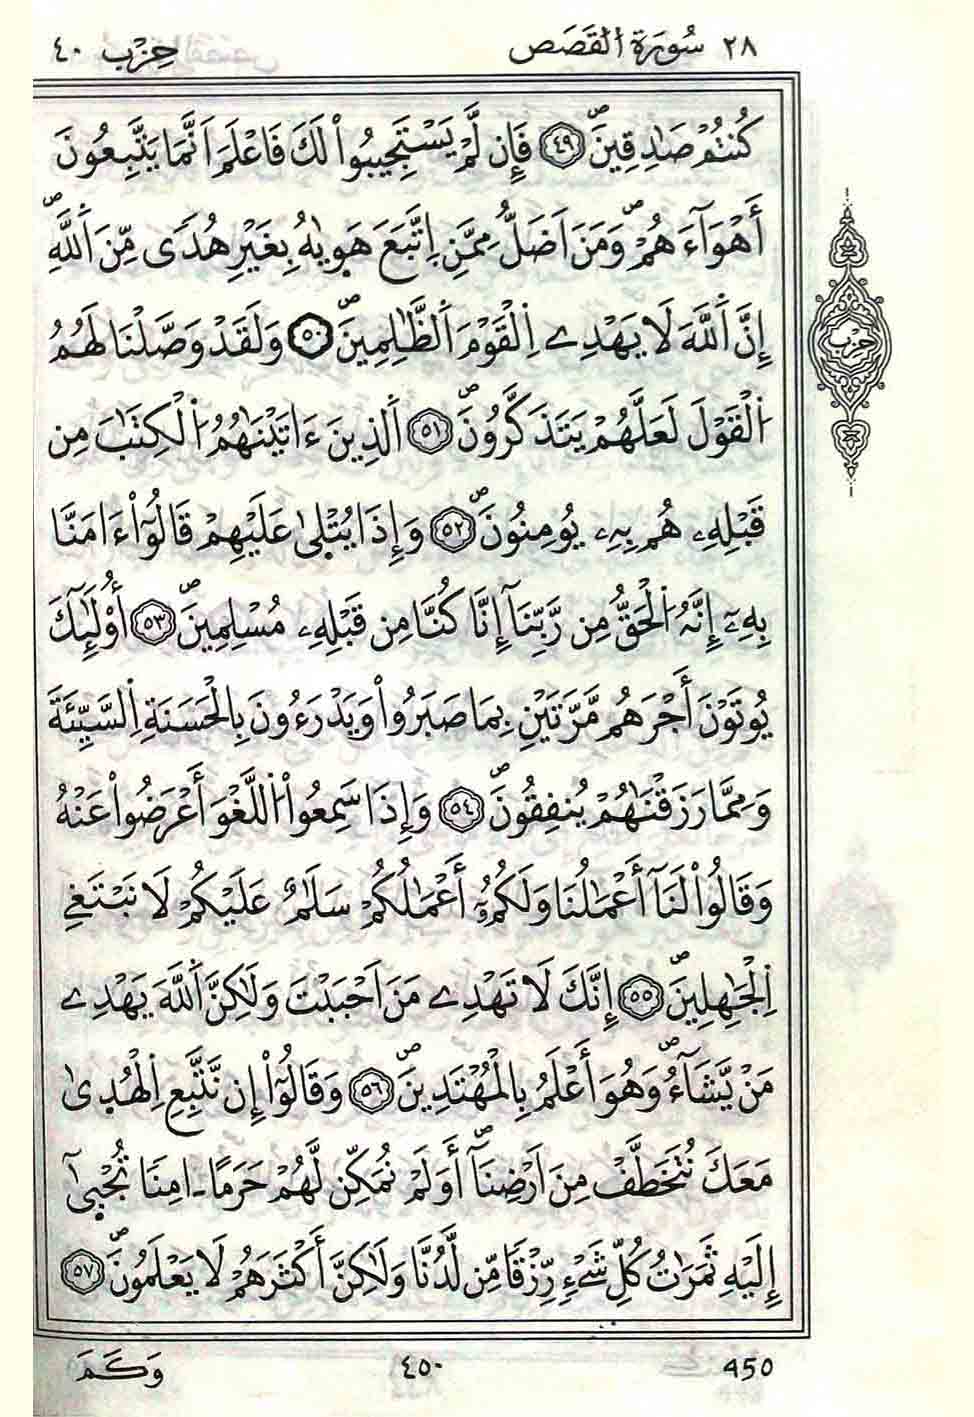 ٢٨ سُورَةُ اُ۬لْقَصَصِ حِزْب ٤٠
كُنتُمْ صَٰدِقِينَۖ ٤٩ فَإِن لَّمْ يَسْتَجِيبُواْ لَكَ فَاعْلَمَ اَنَّمَا يَتَّبِعُونَ
أَهْوَآءَهُمْۖ وَمَنَ اَضَلُّ مِمَّنِ اِ۪تَّبَعَ هَو۪يٰهُ بِغَيْرِ هُدىٗ مِّنَ اَ۬للَّهِۖ
إِنَّ اَ۬للَّهَ لَا يَهْدِے اِ۬لْقَوْمَ اَ۬لظَّٰلِمِينَۖ ٥٠ وَلَقَدْ وَصَّلْنَا لَهُمُ
اُ۬لْقَوْلَ لَعَلَّهُمْ يَتَذَكَّرُونَۖ ٥١ اَ۬لذِينَ ءَاتَيْنَٰهُمُ اُ۬لْكِتَٰبَ مِن
قَبْلِهِۦ هُم بِهِۦ يُومِنُونَۖ ٥٢ وَإِذَا يُتْل۪يٰ عَلَيْهِمْ قَالُوٓاْ ءَامَنَّا
بِهِۦٓ إِنَّهُ اُ۬لْحَقُّ مِن رَّبِّنَآ إِنَّا كُنَّا مِن قَبْلِهِۦ مُسْلِمِينَۖ ٥٣ أُوْلَٰٓئِكَ
يُوتَوْنَ أَجْرَهُم مَّرَّتَيْنِ بِمَا صَبَرُواْ وَيَدْرَءُونَ بِالْحَسَنَةِ اِ۬لسَّيِّئَةَ
وَمِمَّا رَزَقْنَٰهُمْ يُنفِقُونَۖ ٥٤ وَإِذَا سَمِعُواْ اُ۬للَّغْوَ أَعْرَضُواْ عَنْهُ
وَقَالُواْ لَنَآ أَعْمَٰلُنَا وَلَكُمُۥٓ أَعْمَٰلُكُمْ سَلَٰمٌ عَلَيْكُمْ لَا نَبْتَغِے
اِ۬لْجَٰهِلِينَۖ ٥٥ إِنَّكَ لَا تَهْدِے مَنَ اَحْبَبْتَ وَلَٰكِنَّ اَ۬للَّهَ يَهْدِے
مَنْ يَّشَآءُۖ وَهُوَ أَعْلَمُ بِالْمُهْتَدِينَۖ ٥٦ وَقَالُوٓاْ إِن نَّتَّبِعِ اِ۬لْهُد۪يٰ
مَعَكَ نُتَخَطَّفْ مِنَ اَرْضِنَآۖ أَوَلَمْ نُمَكِّن لَّهُمْ حَرَماً اٰمِناٗ تُجْب۪يٰٓ
إِلَيْهِ ثَمَرَٰتُ كُلِّ شَےْءٖ رِّزْقاٗ مِّن لَّدُنَّا وَلَٰكِنَّ أَكْثَرَهُمْ لَا يَعْلَمُونَۖ ٥٧
حِزْب
450 ٤٥٠ وَكَمَ